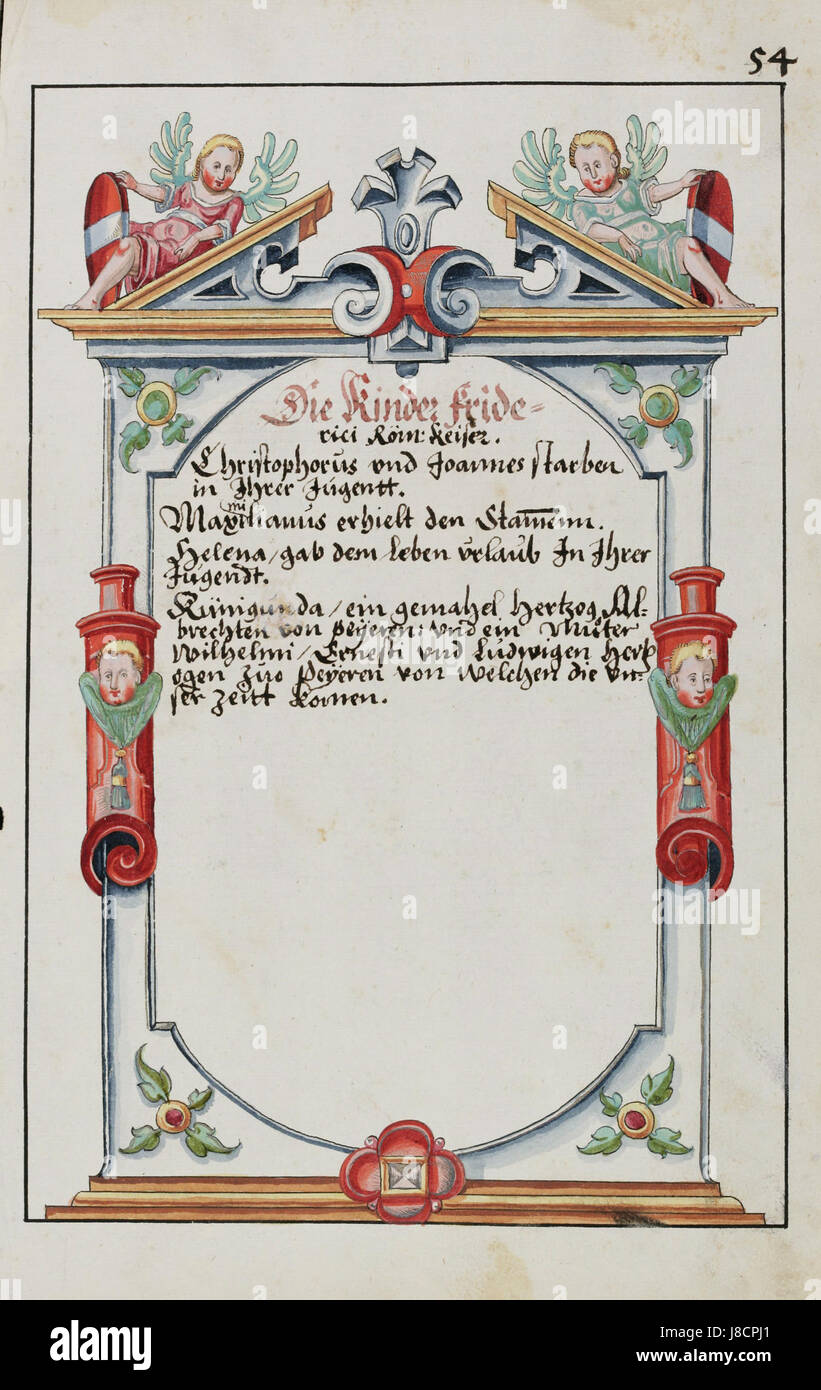 54
Die Kinder Fride=
rici Röm: Keiser.
Christophorus vnd Joannes starben
in Ihrer Jugentt.
Maximilianus erhielt den Stam̄enn.
Helena/ gab dem leben vrlaub In Ihrer
Jugendt.
Künigunda/ ein gemahel Hertzog Al=
brechten von Peyeren: vnd ein Muter
Wilhelmi/ Ernesti vnd Ludwigen Hertz
ogen zuo Peyeren von welchen die vn=
ser zeitt komen.
alamy
Image ID: J8CPJ1
www.alamy.com